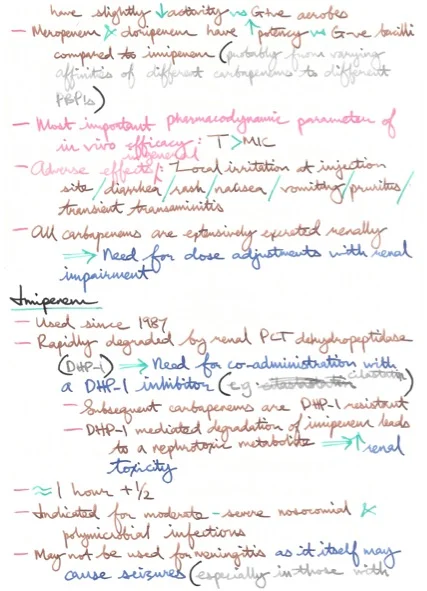 have slightly ↓activity vs G+ve aerobes
— Meropenem & doripenem have ↑potency vs G-ve bacilli
compared to imipenem (probably from varying
affinities of different carbapenems to different
PBPs)
— Most important pharmacodynamic parameter of
in vivo efficacy: T>MIC
in general
— Adverse effects: Local irritation at injection
site/diarrhea/rash/nausea/vomiting/pruritis/
transient transaminitis
— All carbapenems are extensively excreted renally
⇒ Need for dose adjustments with renal
impairment
Imipenem
— Used since 1987
— Rapidly degraded by renal PCT dehydropeptidase
(DHP-1) ⇒ Need for co-administration with
a DHP-1 inhibitor (eg cilastatin)
— Subsequent carbapenems are DHP-1 resistant
— DHP-1 mediated degradation of imipenem leads
to a nephrotoxic metabolite ⇒↑ renal
toxicity
— ≈ 1 hour t½
— Indicated for moderate-severe nosocomial &
polymicrobial infections
— May not be used for meningitis as it itself may
cause seizures (especially in those with